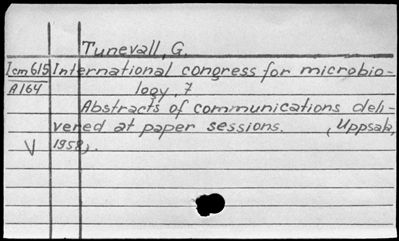 Tunevall, G.
Icm615 International congress for microbio-
A164 logy, 7
Abstracts of communications deli-
vered at paper sessions. (Uppsala,
V 1958).